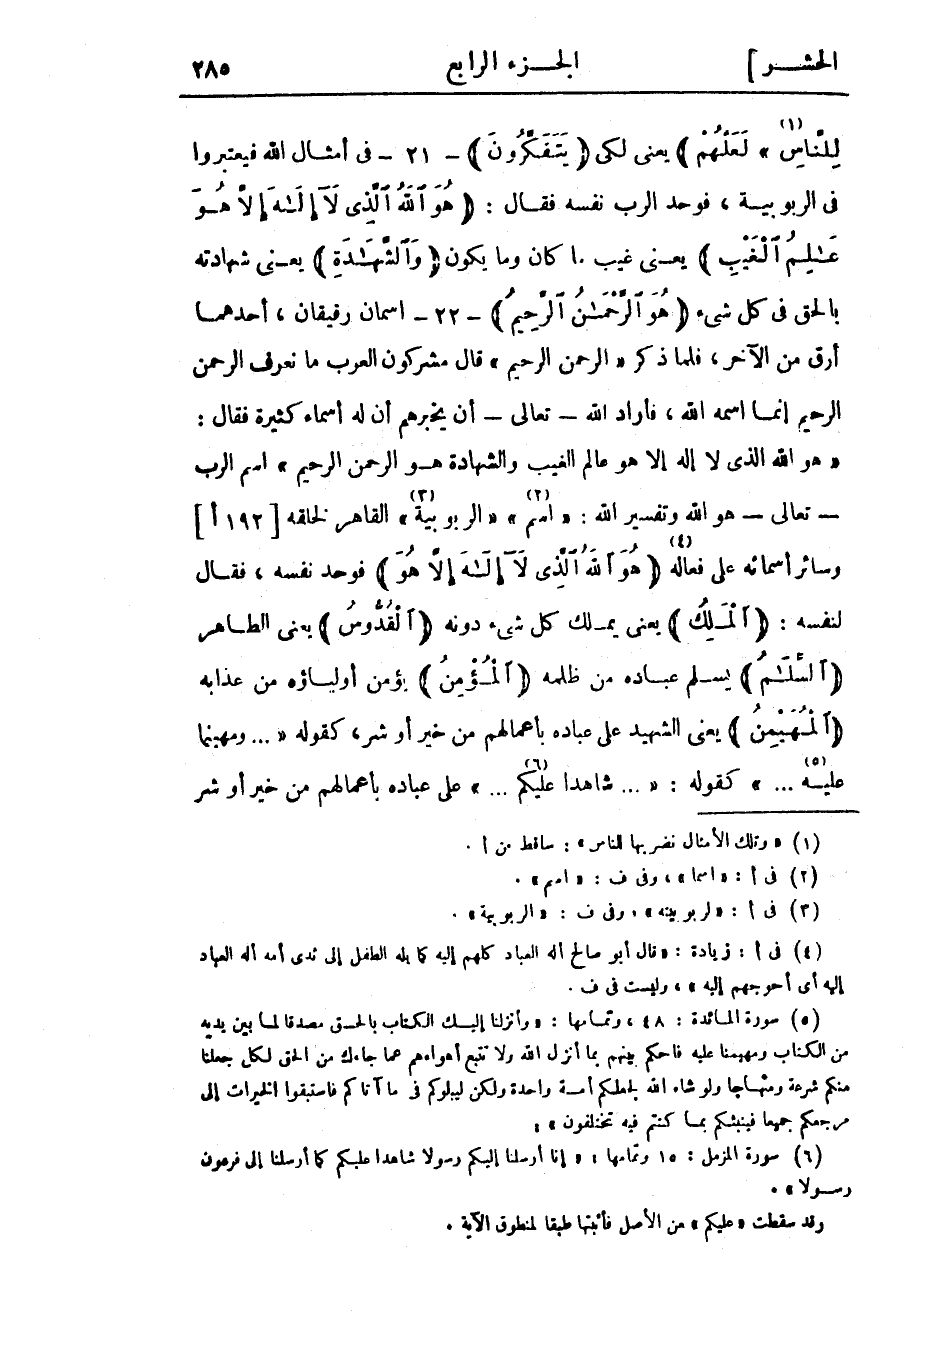 الحشر] الجزء الرابع ٢٨٥
لِلنَّاسِ (١) » لَعَلَّهُمْ ) يعنى لكى ( يَتَفَكَّرُونَ ) - ٢١ - فى أمثال الله فيعتبروا
فى الربوبية ، فوحد الرب نفسه فقال : ( هُوَ ٱللَّهُ ٱلَّذِى لَآ إِلَـٰهَ إِلَّا هُوَ
عَـٰلِمُ ٱلْغَيْبِ ) يعنى غيب ما كان وما يكون ( وَٱلشَّهَـٰدَةِ ) يعنى شهادته
بالحق فى كل شىء ( هُوَ ٱلرَّحْمَـٰنُ ٱلرَّحِيمُ ) - ٢٢ - اسمان رقيقان ، أحدهما
أرق من الآخر ، فلما ذكر « الرحمن الرحيم » قال مشركون العرب ما نعرف الرحمن
الرحيم إنما اسمه الله ، فأراد الله - تعالى - أن يخبرهم أن له أسماء كثيرة فقال :
« هو الله الذى لا إله إلا هو عالم الغيب والشهادة هو الرحمن الرحيم » اسم الرب
- تعالى - هو الله وتفسير الله : « اسم (٢) » « الربوبية (٣) » القاهر لخلقه [ ١٩٢ أ ]
وسائر أسمائه على فعاله (٤) ( هُوَ ٱللَّهُ ٱلَّذِى لَآ إِلَـٰهَ إِلَّا هُوَ ) فوحد نفسه ، فقال
لنفسه : ( ٱلْمَلِكُ ) يعنى يملك كل شىء دونه ( ٱلْقُدُّوسُ ) يعنى الطاهر
( ٱلسَّلَـٰمُ ) يسلم عباده من ظلمه ( ٱلْمُؤْمِنُ ) يؤمن أولياؤه من عذابه
( ٱلْمُهَيْمِنُ ) يعنى الشهيد على عباده بأعمالهم من خير أو شر، كقوله « ... ومهيمنا
عليه (٥) ... » كقوله : « ... شاهدا عليكم (٦) ... » على عباده بأعمالهم من خير أو شر
(١) « وتلك الأمثال نضربها للناس » : ساقط من أ .
(٢) فى أ : « اسما » ، وفى ف : « اسم » .
(٣) فى أ : «لربوبيته» ، وفى ف : «الربوبية» .
(٤) فى أ : زيادة : « قال أبو صالح أله العباد كلهم إليه كما يله الطفل إلى ثدى أمه أله العباد
إليه أى أحوجهم إليه » ، وليست فى ف .
(٥) سورة المائدة : ٤٨ ، وتمامها : « وأنزلنا إليك الكتاب بالحق مصدقا لما بين يديه
من الكتاب ومهيمنا عليه فاحكم بينهم بما أنزل الله ولا تتبع أهواءهم عما جاءك من الحق لكل جعلنا
منكم شرعة ومنهاجا ولو شاء الله لجعلكم أمة واحدة ولكن ليبلوكم فى ما آتاكم فاستبقوا الخيرات إلى
مرجعكم جميعا فينبئكم بما كنتم فيه تختلفون » .
(٦) سورة المزمل : ١٥ وتمامها : « إنا أرسلنا إليكم رسولا شاهدا عليكم كما أرسلنا إلى فرعون
رسولا» .
وقد سقطت « عليكم » من الأصل فأثبتها طبقا لمنطوق الآية .